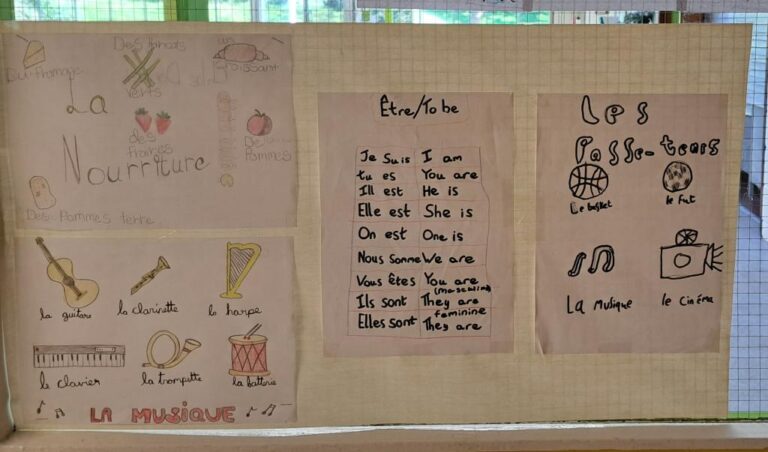 Du fromage
Des haricots
verts
un
Croissant
La
des
fraises
Des
Pommes
Nourriture
Des Pommes terre
la guitare
la clarinette
la harpe
le clavier
la trompette
la batterie
LA MUSiQUE
Être/To be
Je Suis I am
tu es You are
Ill est He is
Elle est She is
On est One is
Nous Somme We are
Vous êtes You are
(masculine)
Ils sont They are
feminine
Elles sont They are
Les
Passe-tems
Le basket
le fut
La Musique
le Cinéma